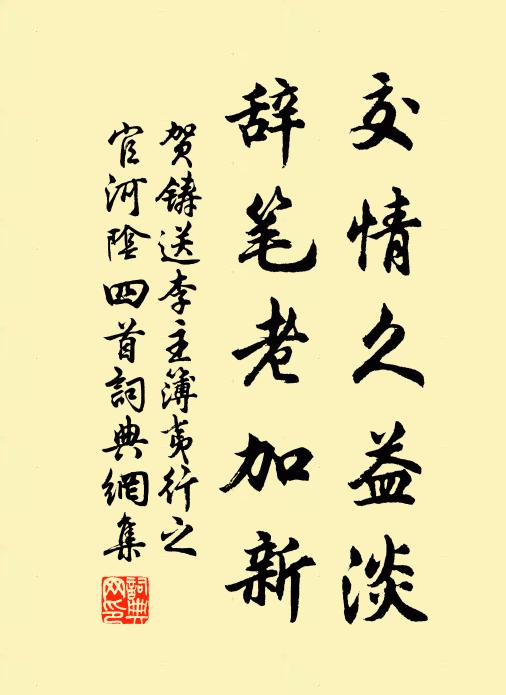 交情久益淡
辞笔老加新
贺铸送李主簿夷行之
官河陰四首詞典網集
詞典网印